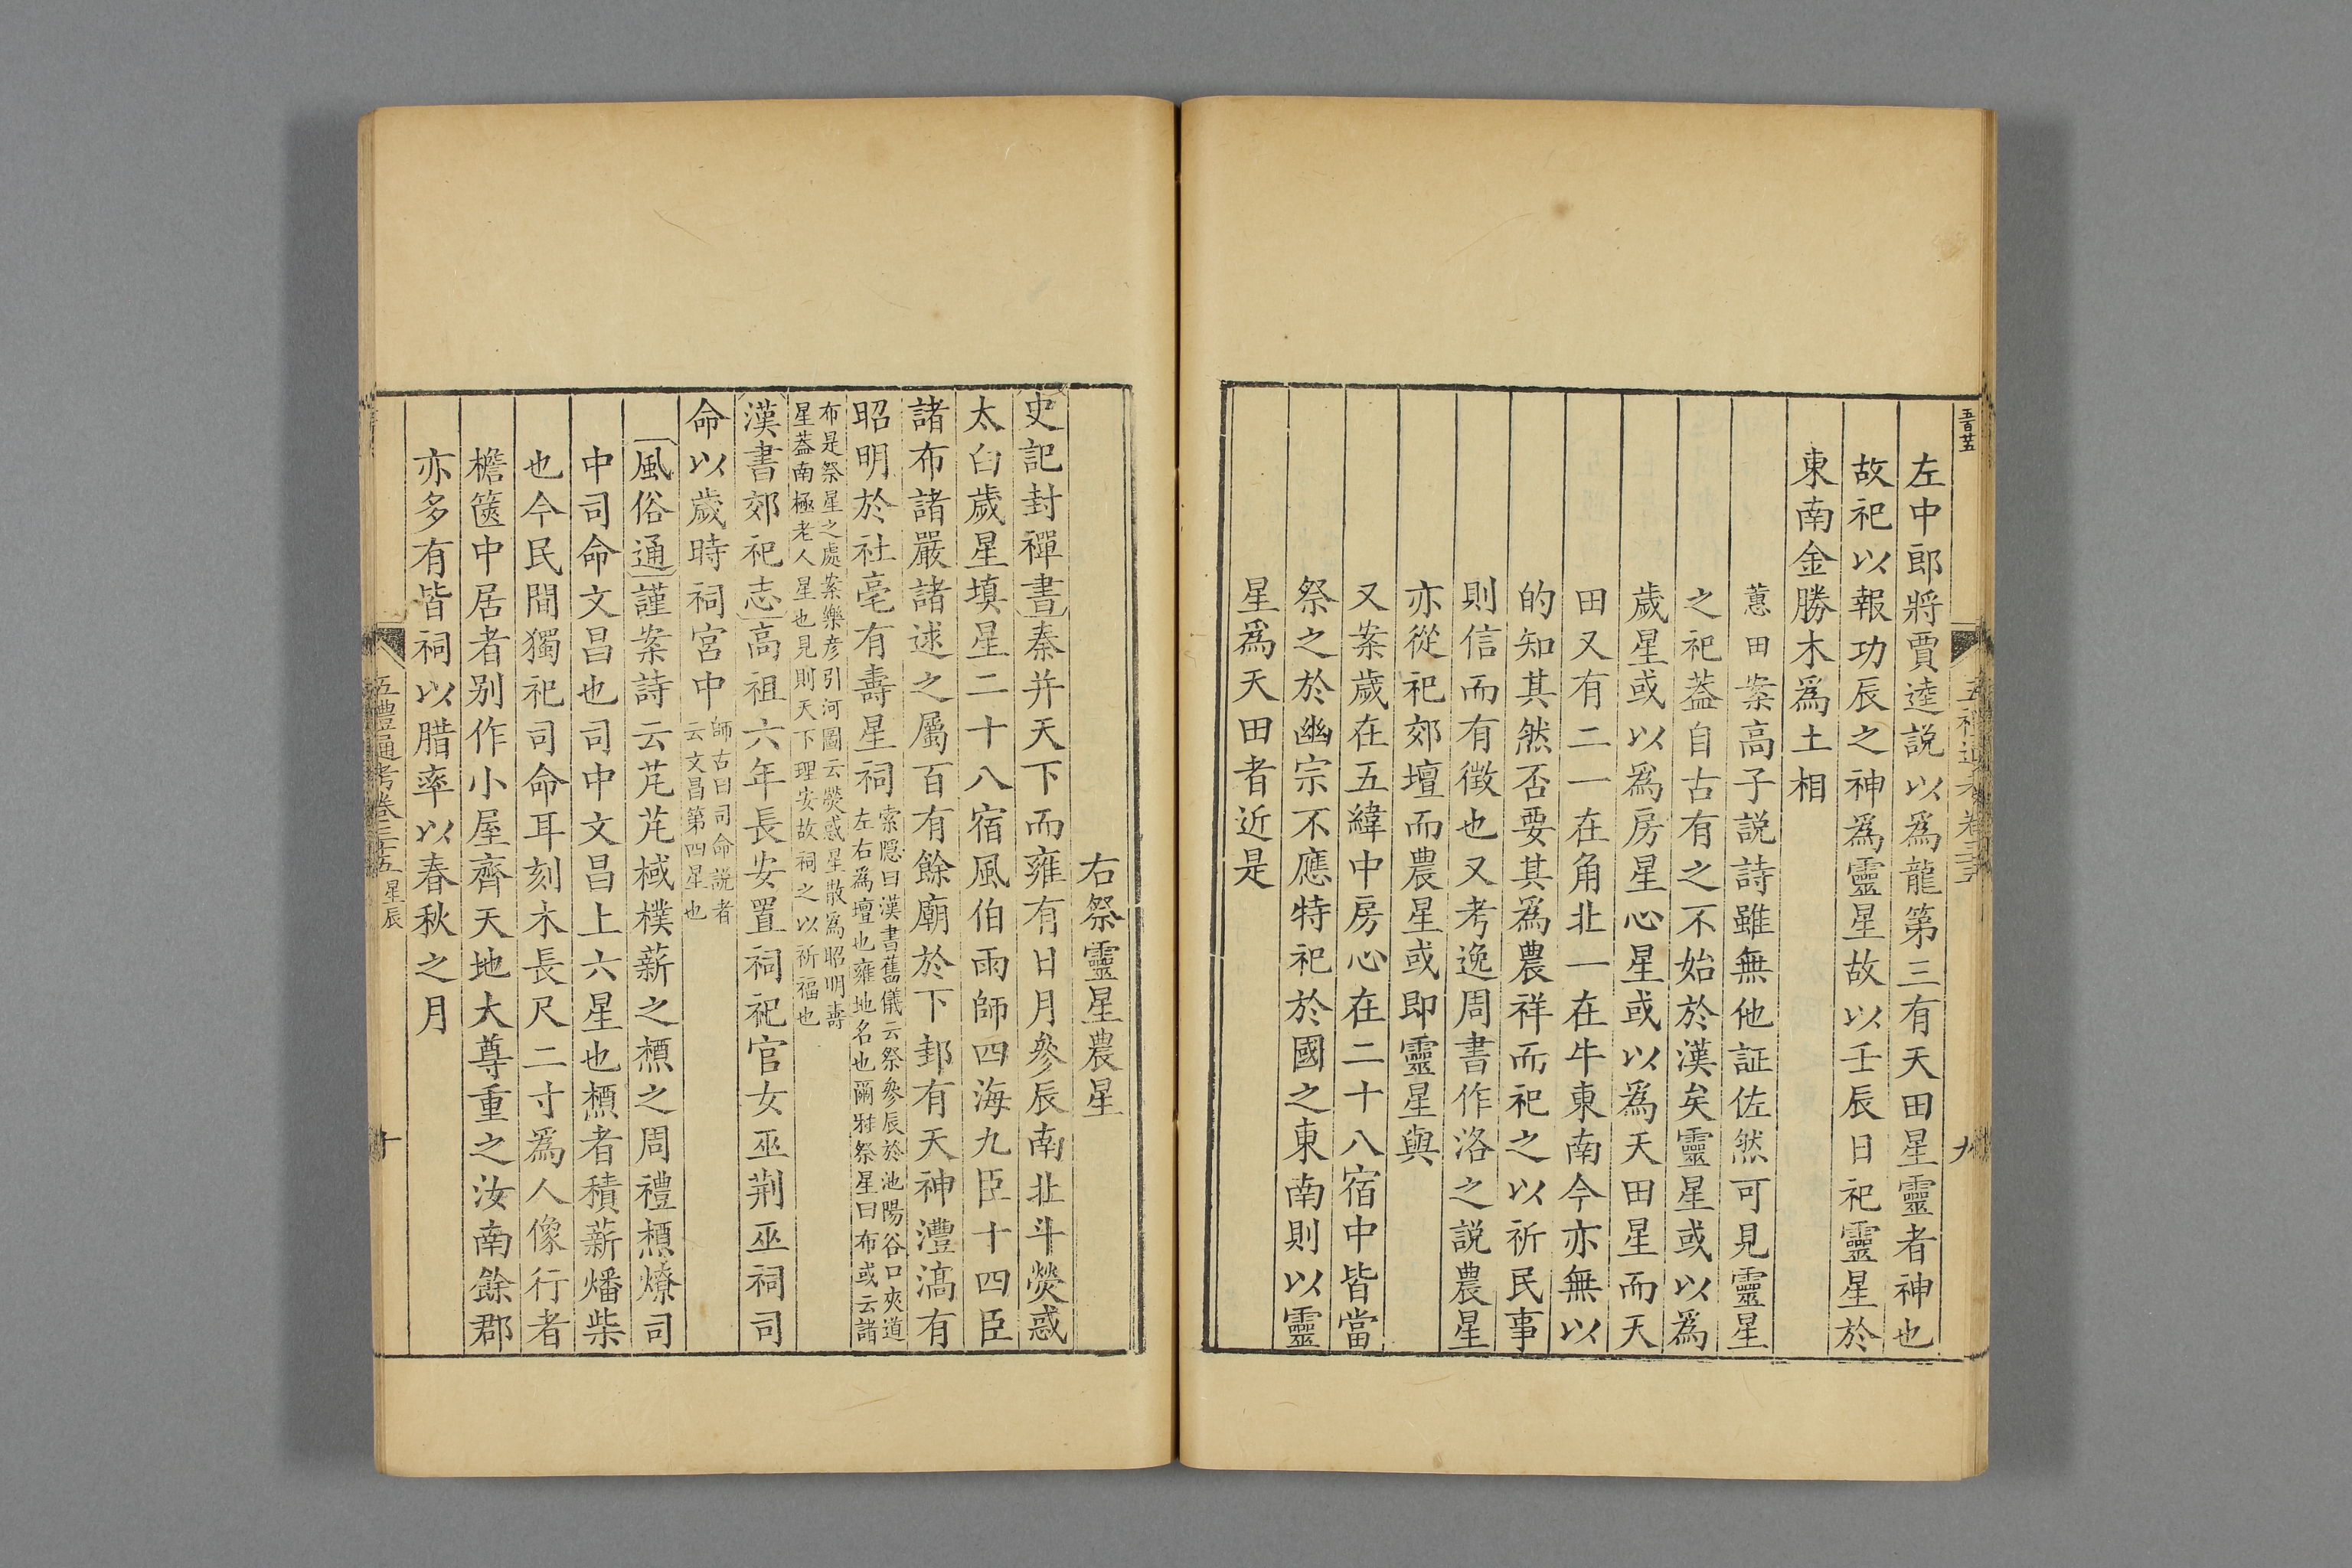 五百廿五
九
左中郎將賈逵説以為龍第三有天田星靈者神也
故祀以報功辰之神為靈星故以壬辰日祀靈星於
東南金勝木為土相
蕙田案高子説詩雖無他証佐然可見靈星
之祀葢自古有之不始於漢矣靈星或以為
歲星或以為房星心星或以為天田星而天
田又有二一在角北一在牛東南今亦無以
的知其然否要其為農祥而祀之以祈民事
則信而有徴也又考逸周書作洛之説農星
亦從祀郊壇而農星或即靈星與
又案歲在五緯中房心在二十八宿中皆當
祭之於幽宗不應特祀於國之東南則以靈
星為天田者近是
右祭靈星農星
史記封禪書秦并天下而雍有日月參辰南北斗熒惑
太白歲星填星二十八宿風伯雨師四海九臣十四臣
諸布諸嚴諸逑之屬百有餘廟於下邽有天神灃滈有
昭明於社亳有壽星祠
索隠曰漢書舊儀云祭參辰於池陽谷口夾道
左右為壇也雍地名也爾雅祭星曰布或云諸
布是祭星之處案樂彦引河圖云熒惑星散為昭明壽
星葢南極老人星也見則天下理安故祠之以祈福也
漢書郊祀志高祖六年長安置祠祀官女巫荆巫祠司
命以歲時祠宮中
師古曰司命説者
云文昌第四星也
風俗通謹案詩云芃芃棫樸薪之槱之周禮槱燎司
中司命文昌也司中文昌上六星也槱者積薪燔柴
也今民間獨祀司命耳刻木長尺二寸為人像行者
檐篋中居者别作小屋齊天地大尊重之汝南餘郡
亦多有皆祠以腊率以春秋之月
五禮通考卷三十五 星辰
十